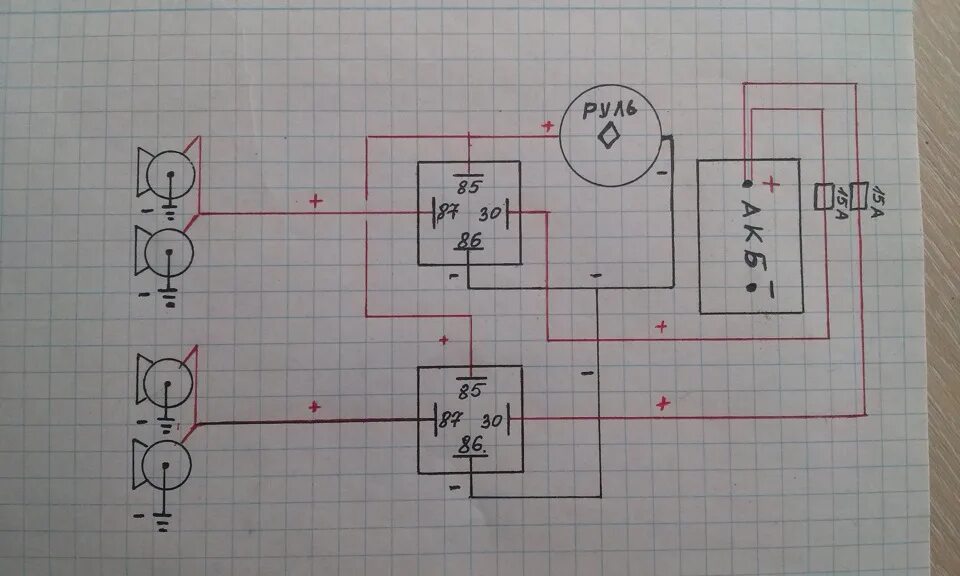 РУЛЬ
+
-
+
АКБ
-
15А
15А
85
87
30
86
-
+
-
-
-
+
+
-
85
87
30
86.
-
+
+
-
-